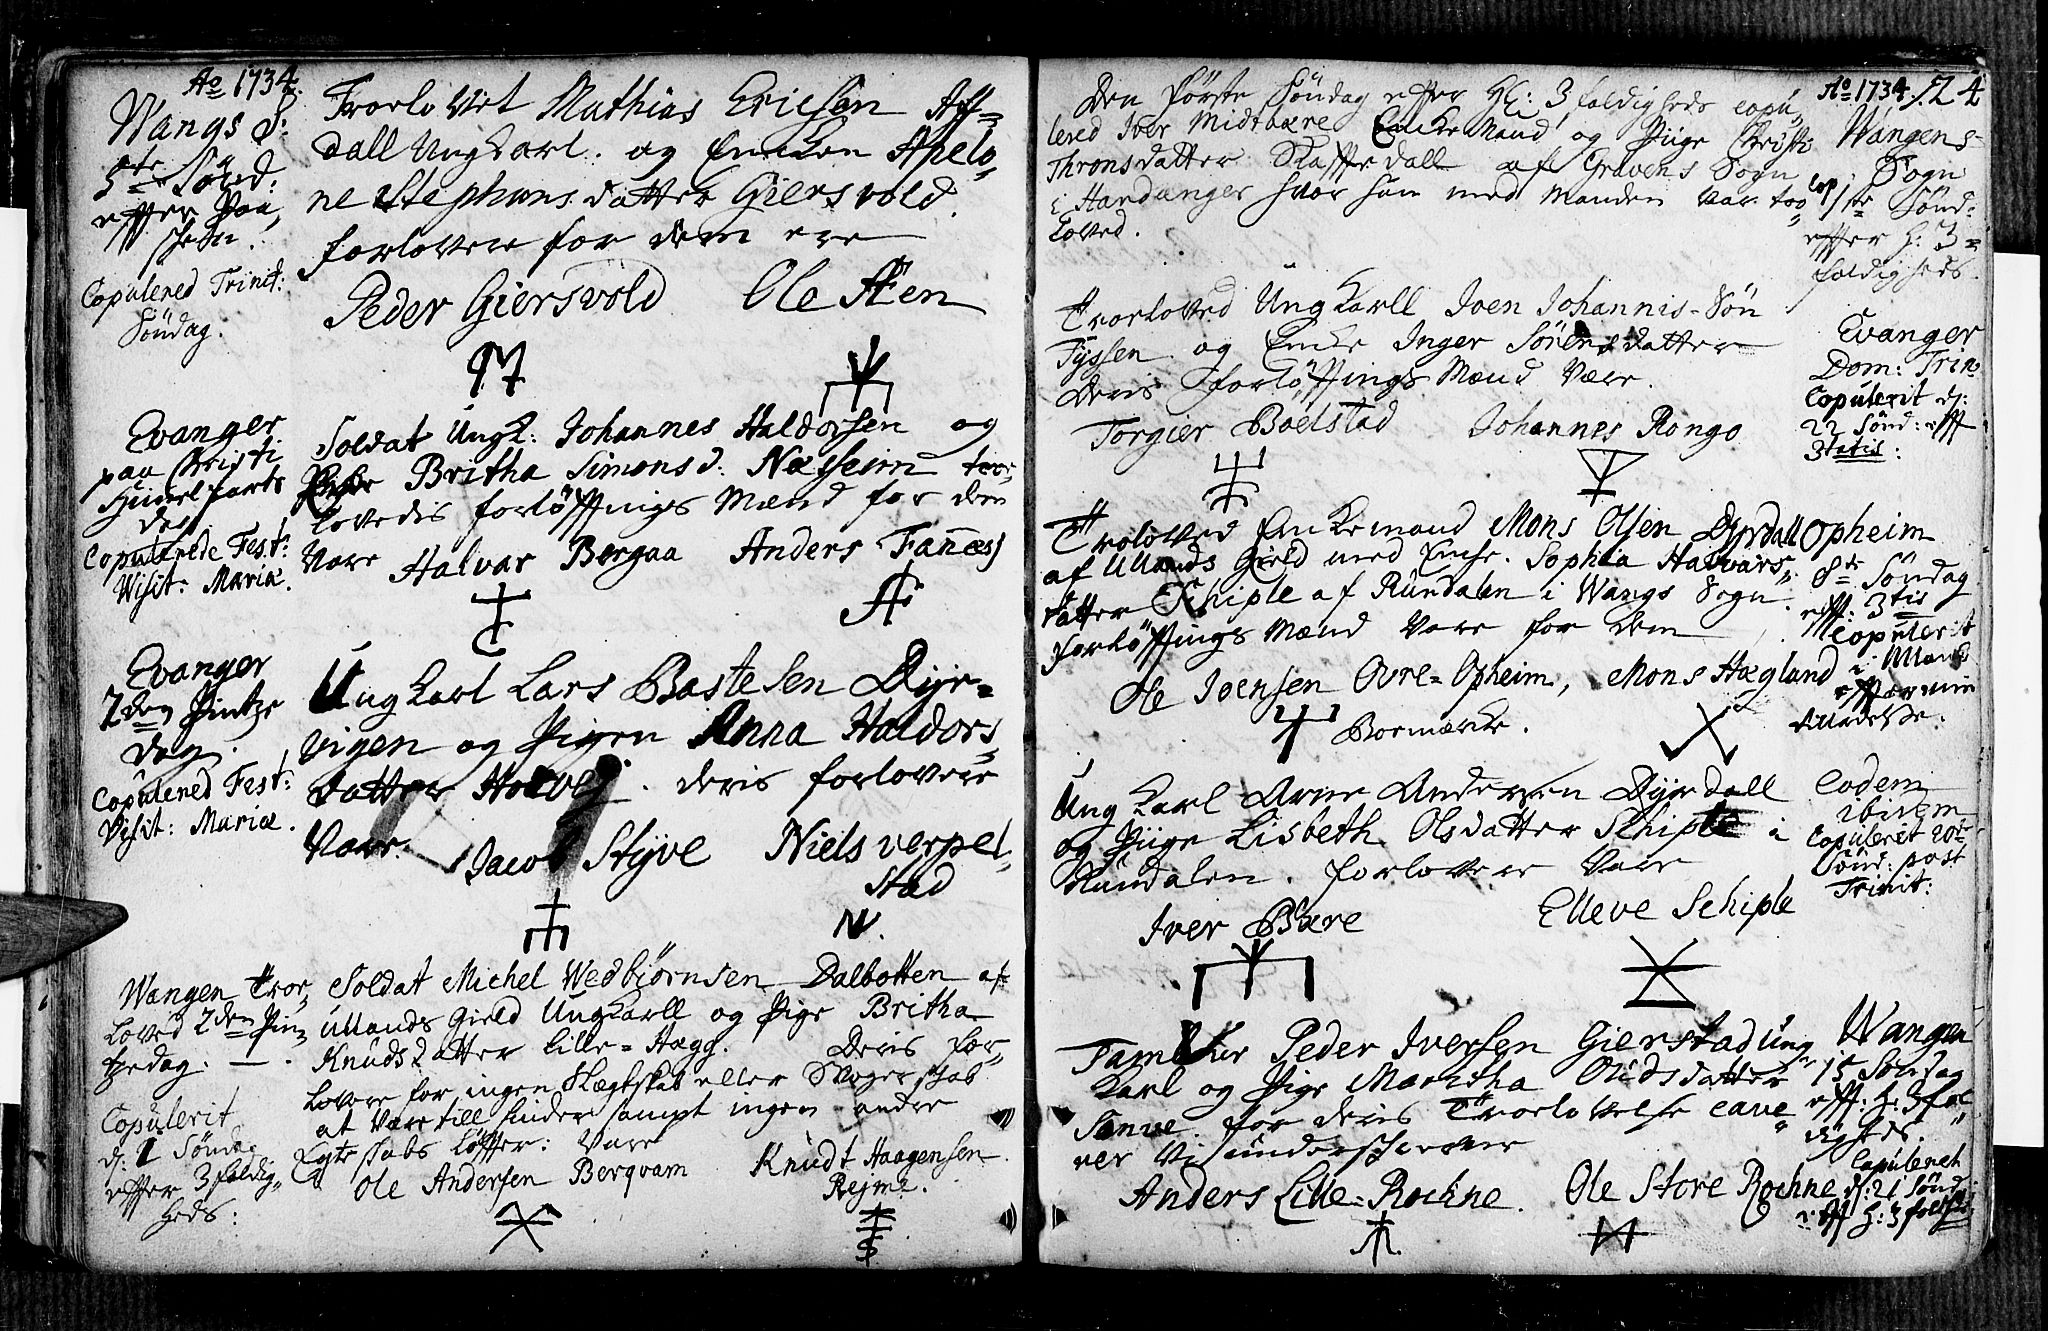 Ao 1734.
Wangs S:
5te Sönd:
effter Paa,
schen.
Copulered Trinit:
Söndag.
Troelovet Mathias Ericsen Aff=
dall Ungkarl. og Encken Apelo,
ne Stephens datter Giersvold.
forlovere for dem ere
Peder Giersvold Ole Æen
Evanger
paa Christi
Himmelfarts
dag
Copulerede Fest:
Visit: Mariæ.
Soldat Ungk: Johannes Haldorsen og
Pige Britha Simonsd: Næsheim troe,
lovedis forlöffnings Mænd for dem
Vare Halvar Borgaa Anders Fanæss
Evanger
2den Pintze
dag.
Copulered Fest:
Visit: Mariæ.
Ungkarl Lars Bastesen Dyr=
vigen og Pigen Anna Haldors,
datter Horvej. deris forlovere
Vare. Jacob Styve Niels verpel,
stad
Wangen Troe,
loved 2den Pin,
tzedag.
Copulerit
d: 1 Söndag
effter 3 foldig,
heds:
Soldat Michel Wedbiörnsen Dalbotten af
Ullands Gield Ungkarll og Pige Britha
Knudsdatter Lille=Hægg. Deris for,
lovere for ingen Slegtskab eller Svogerskab
at være till hinder sampt ingen andre
Egteskabs Löffter: Vare
Ole Andersen Bergvam Knudt Haagensen
Rejme.
Den förste Söndag effter HL: 3 foldigheds copu,
lered Iver Midtbære Enckemand og Pige Christi
Thronsdatter Skaffledall af Gravens Sogn
i Hardanger hvor hun med Manden var troe,
loved.
Ao 1734. 124
Wangens
Sogn
Cop: 1te Sönd:
effter H: 3=
foldigheds.
Troeloved Ungkarll Joen Johannis-Sön
Tyssen og Encke Inger Sörensdatter
Deris Forlöffnings Mænd Vare.
Torgier Boelstad Johannes Rongo
Evanger
Dom: Trin:
Copulerit d:
22 Sönd: eff
3tatis:
Troloved Enckemand Mons Olsen Dyrdall
af Ullands Gield med Encke. Sophia Halvars,
datter Schiple af Rundalen i Wangs Sogn.
Forlöffnings Mænd Vare for dem
Ole Joensen Ovre=Opheim, Mons Hægland
Boemærcke.
Opheim
8de Söndag
eff: 3tis
Copulerit
i Uland
effter min
tilladelse.
Ungkarl Arne Andersen Dyrdall
og Pige Lisbeth Olsdatter Schiple i
Rundalen. forlovere Vare
Iver Bære Elleve Schiple
Eodem
ibidem
Copulerit 20de
Sönd: post
Trinit:
Tambur Peder Iversen Gierstad Ung,
karl og Pige Maritha Olidsdatter
Sanve for deris Troelovelse cave,
rer vi underschrevne
Anders Lille=Rochne. Ole Store Rochne
Wangen
15 Söndag
eff: H: 3fol,
digheds.
Copuleret
d: 21 Sönd:
eff H: 3foldh: